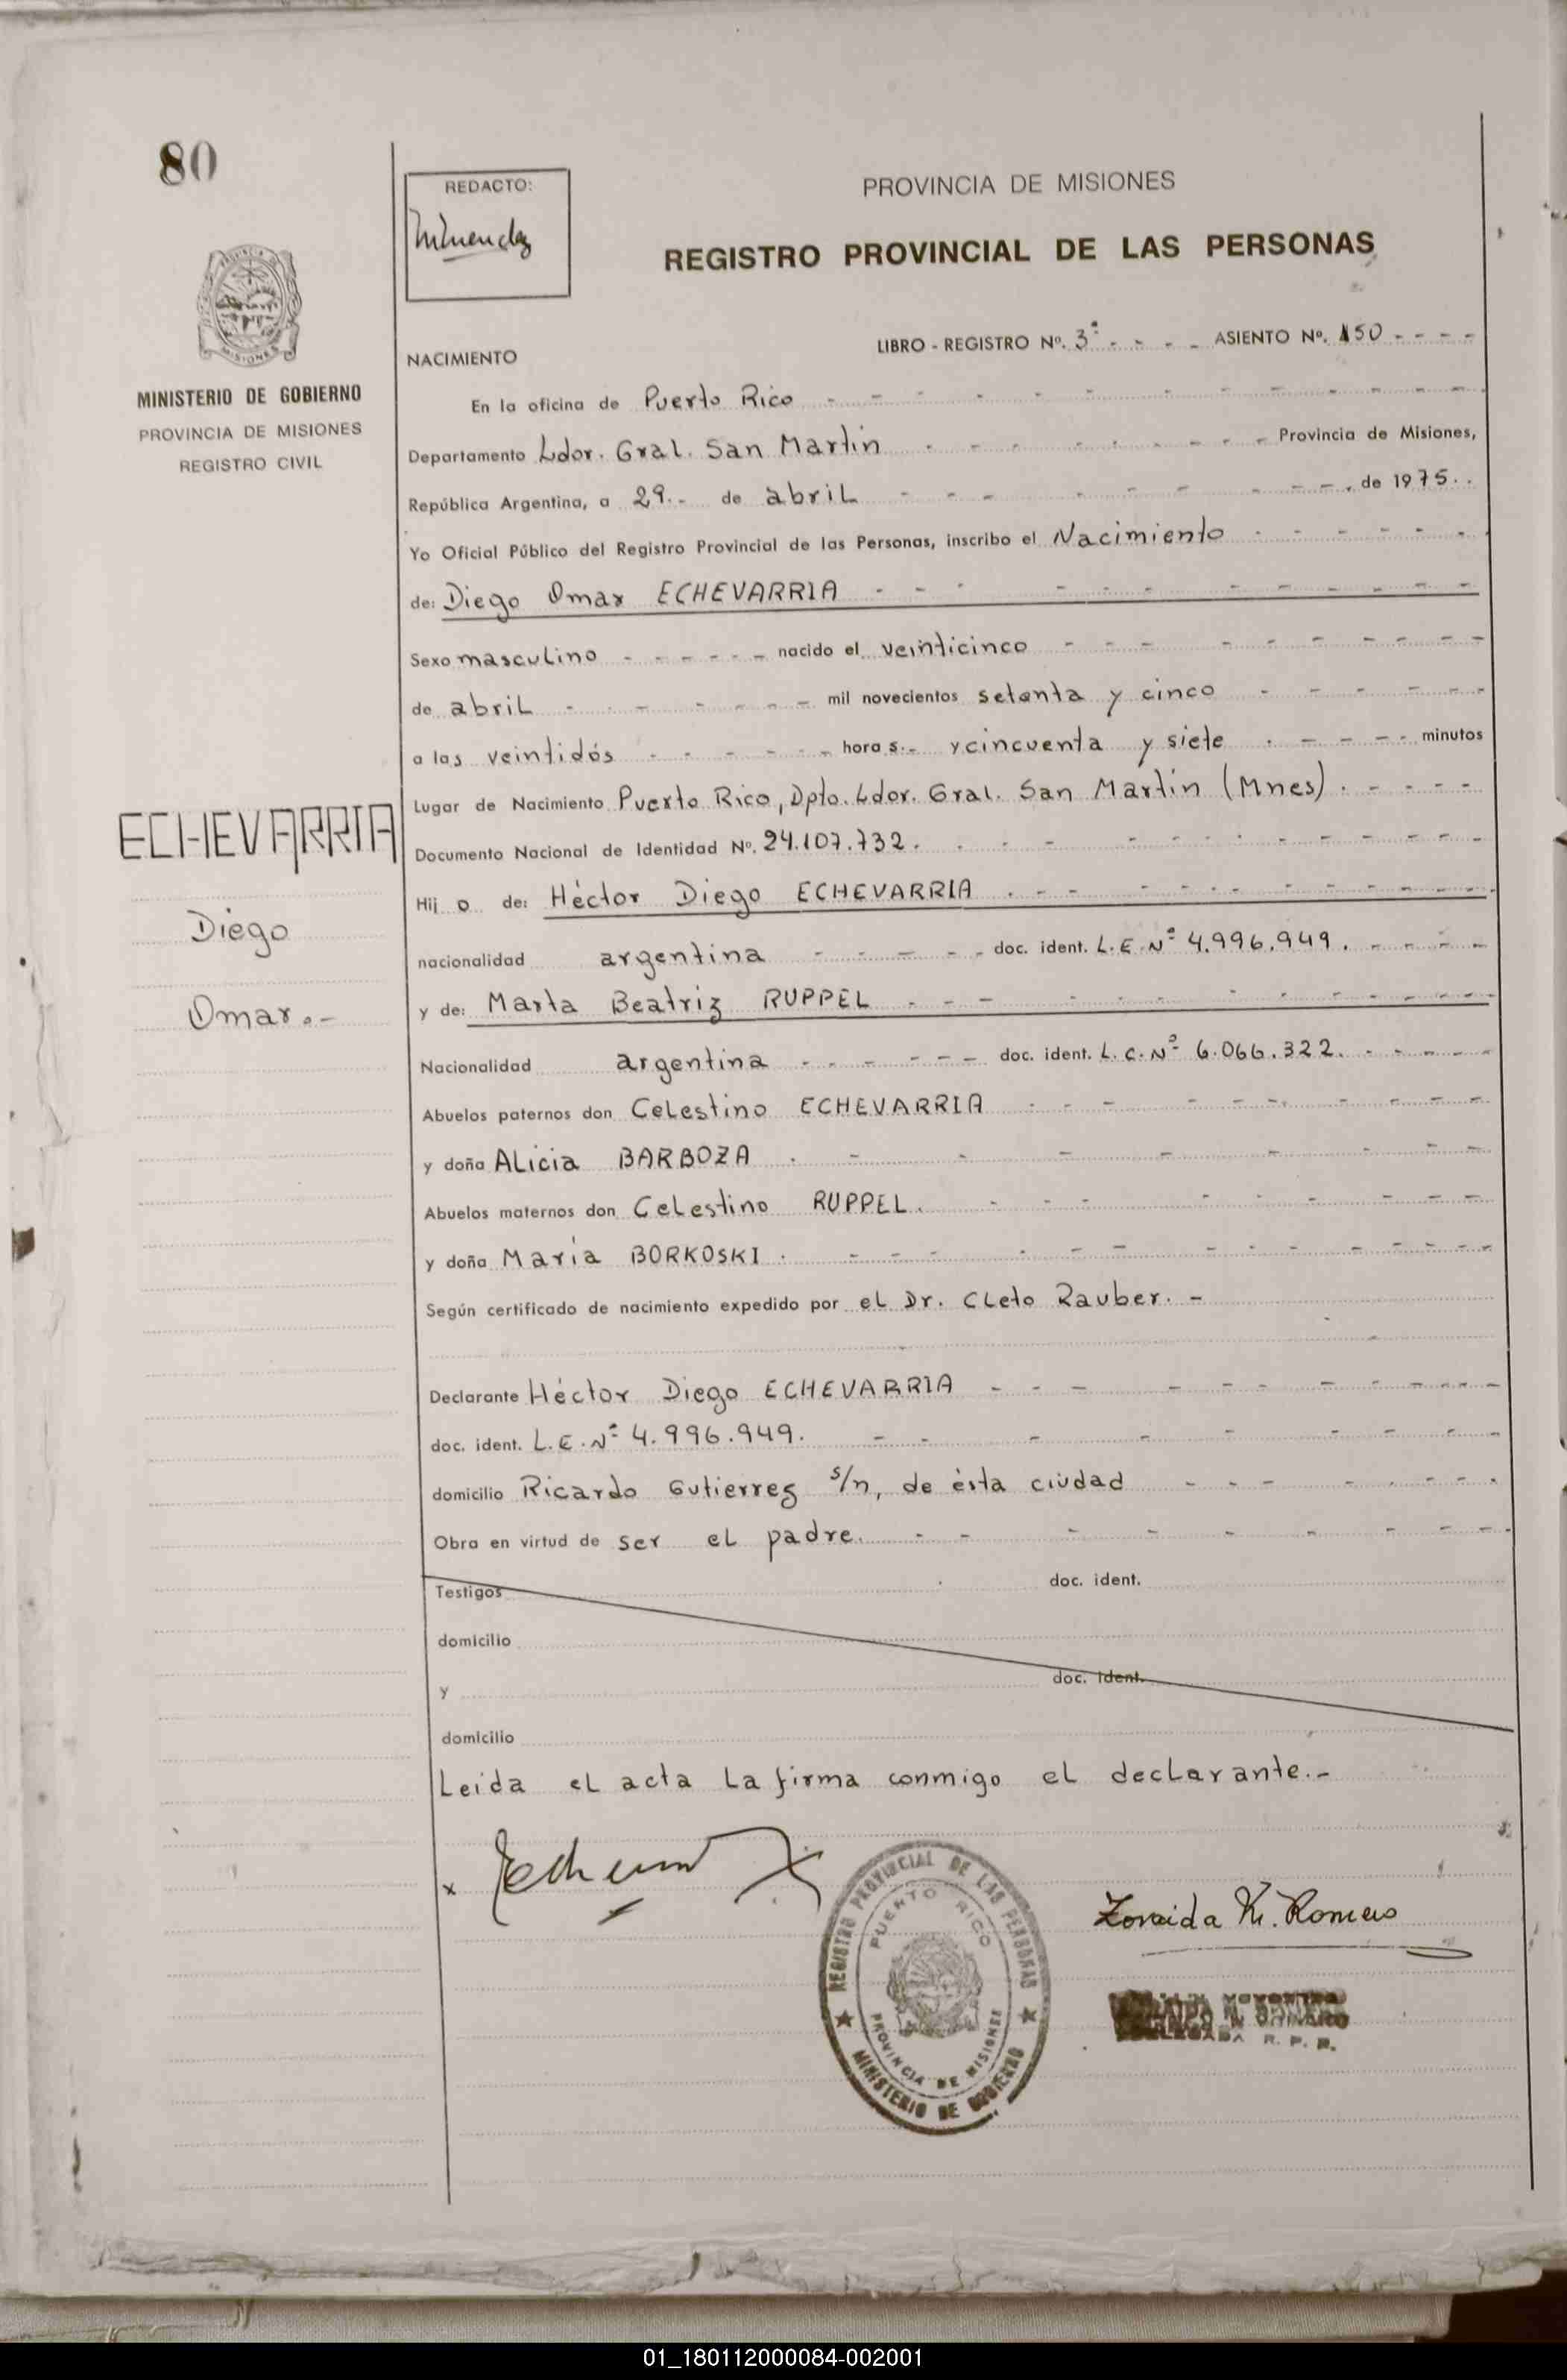 80
REDACTO:
PROVINCIA DE MISIONES
REGISTRO PROVINCIAL DE LAS PERSONAS
MISIONES
MINISTERIO DE GOBIERNO
PROVINCIA DE MISIONES
REGISTRO CIVIL
NACIMIENTO
LIBRO - REGISTRO Nº. 3º - - - - ASIENTO Nº. 150 - - - -
En la oficina de Puerto Rico
Departamento Ldor. Gral. San Martín - - - Provincia de Misiones,
República Argentina, a 29.- de abril - - - de 1975..
Yo Oficial Público del Registro Provincial de las Personas, inscribo el Nacimiento
de: Diego Omar ECHEVARRIA
Sexo masculino - - - - - - nacido el veinticinco
de abril - - - - - - mil novecientos setenta y cinco
a las veintidós - - - - - - hora s.- y cincuenta y siete - - - - minutos
Lugar de Nacimiento Puerto Rico, Dpto. Ldor. Gral. San Martín (Mnes).
Documento Nacional de Identidad Nº. 24.107.732.
ECHEVARRIA
Diego
Omar.-
Hij o de: Héctor Diego ECHEVARRIA
nacionalidad argentina - - - - - doc. ident. L.E. Nº 4.996.949.
y de: Marta Beatriz RUPPEL
Nacionalidad argentina - - - - - - doc. ident. L.C. Nº 6.066.322.
Abuelos paternos don Celestino ECHEVARRIA
y doña Alicia BARBOZA
Abuelos maternos don Celestino RUPPEL.
y doña María BORKOSKI.
Según certificado de nacimiento expedido por el Dr. Cleto Rauber. -
Declarante Héctor Diego ECHEVARRIA
doc. ident. L.E. Nº 4.996.949.
domicilio Ricardo Gutierrez s/n, de ésta ciudad
Obra en virtud de ser el padre.
Testigos doc. ident.
domicilio
y doc. ident.
domicilio
Leida el acta la firma conmigo el declarante.-
x
REGISTRO PROVINCIAL DE LAS PERSONAS
PUERTO RICO
PROVINCIA DE MISIONES
MINISTERIO DE GOBIERNO
Zoraida M. Romero
R. P. P.
01_180112000084-002001